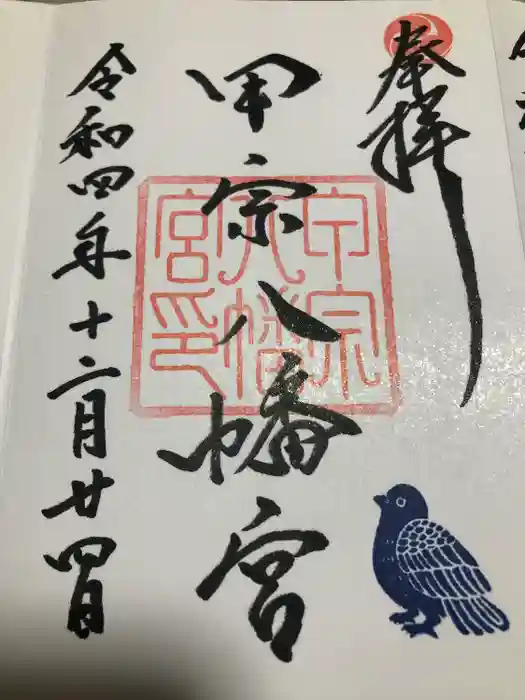 奉拝
甲宗八幡宮
甲宗八幡宮印
令和四年十二月廿四日